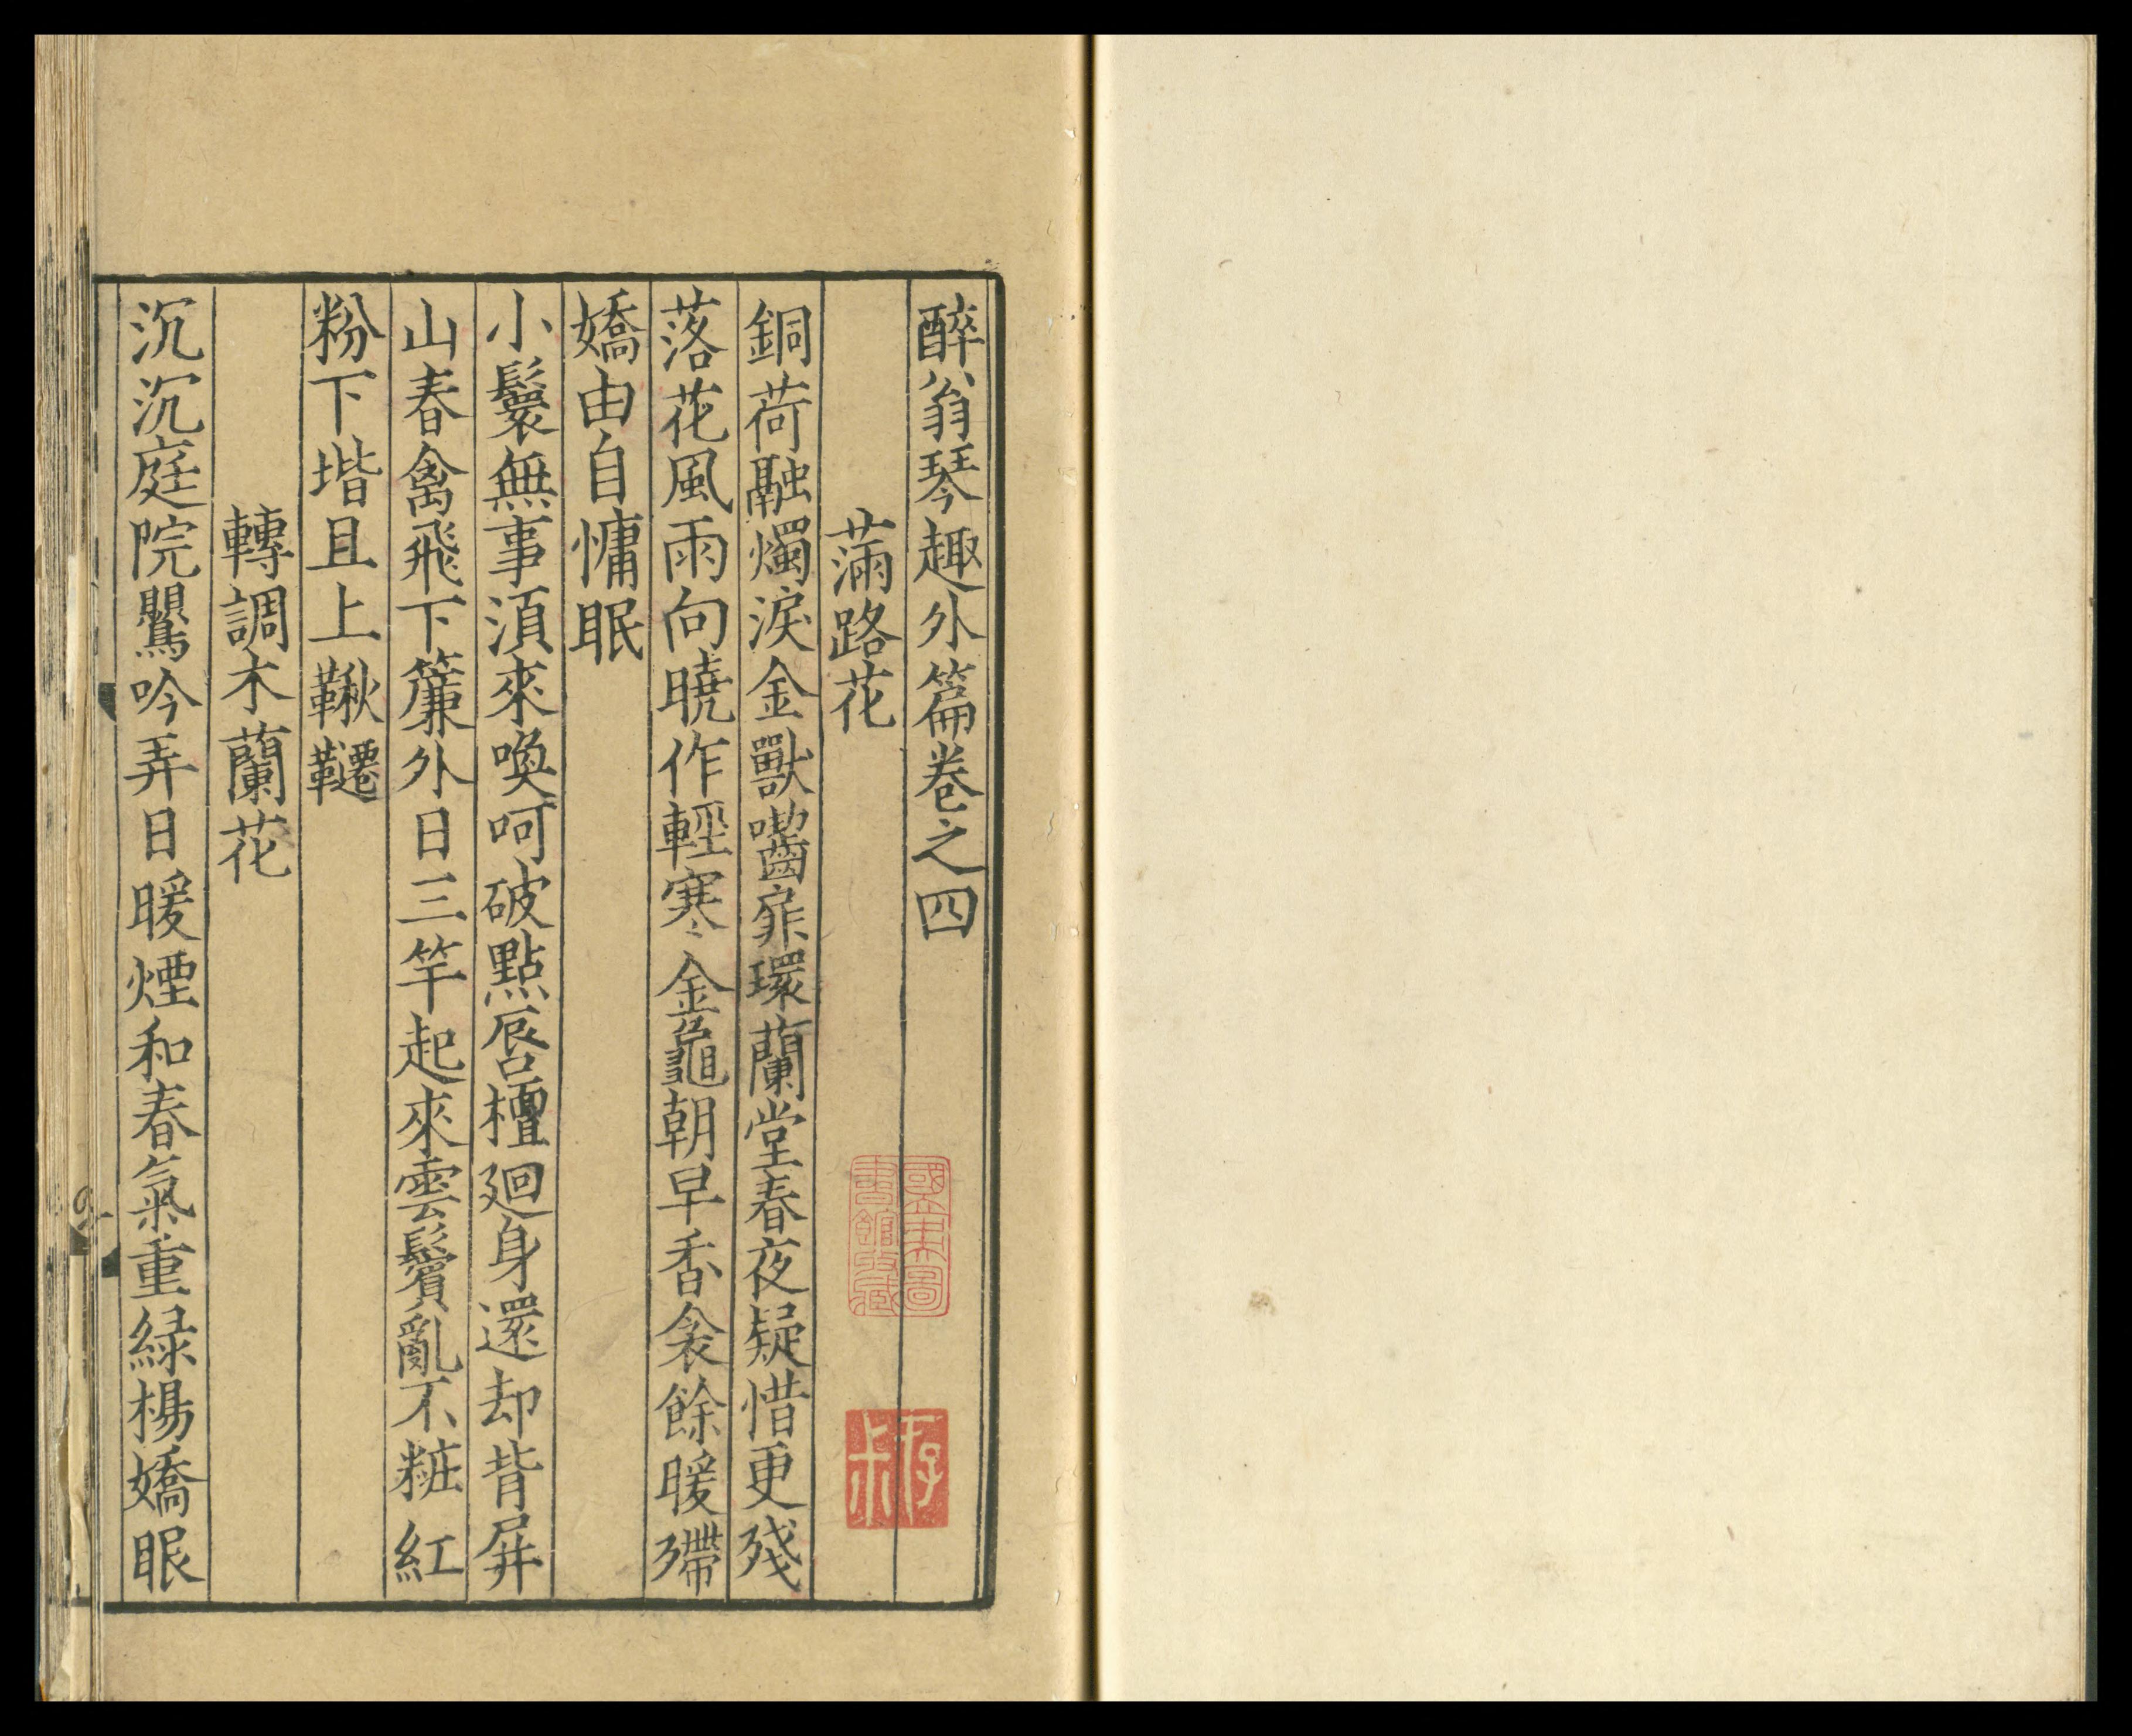 醉翁琴趣外篇卷之四
滿路花
銅荷融燭淚金獸嚙扉環蘭堂春夜疑惜更殘
落花風雨向曉作輕寒金龜朝早香衾餘暖殢
嬌由自慵眠
小鬟無事須來喚呵破點唇檀廻身還却背屏
山春禽飛下簾外日三竿起來雲鬢亂不粧紅
粉下堦且上鞦韆
轉調木蘭花
沉沉庭院鸎吟弄日暖煙和春氣重緑楊嬌眼
國立中央圖書館收藏